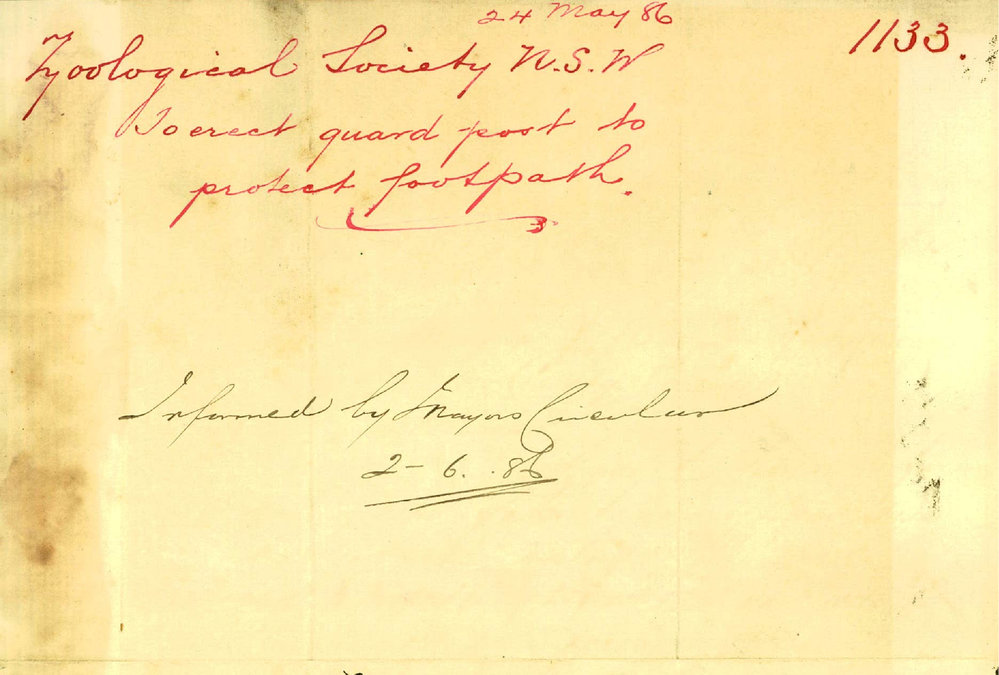 24 May 86
1133.
Zoological Society N.S.W
To erect guard post to
protect footpath.
Informed by Mayors Circular
2-6.86